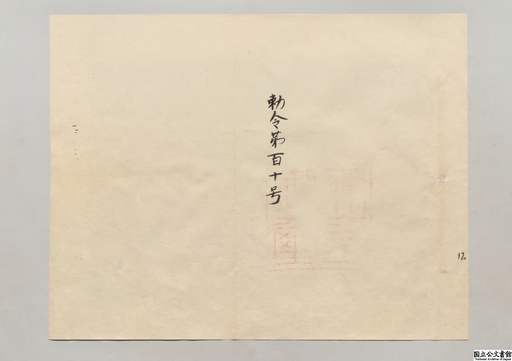 勅令第百十号
12
国立公文書館
National Archives of Japan